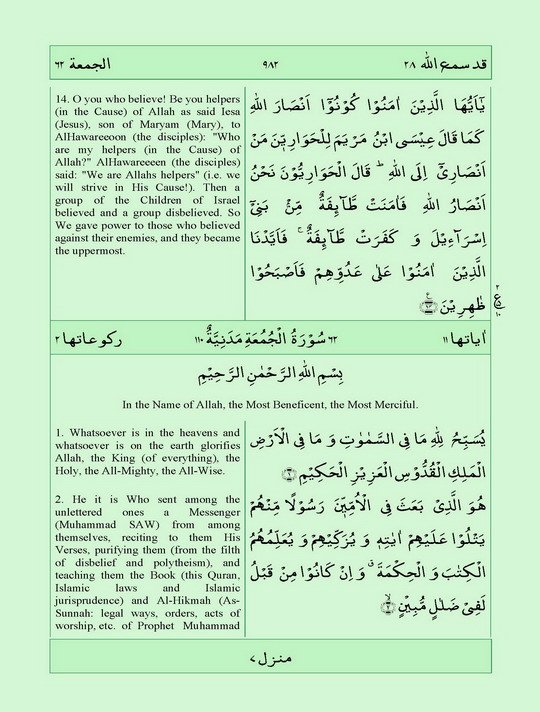 قد سمع الله ٢٨
٩٨٢
الجمعة ٦٢
14. O you who believe! Be you helpers
(in the Cause) of Allah as said Iesa
(Jesus), son of Maryam (Mary), to
AlHawareeoon (the disciples): "Who
are my helpers (in the Cause) of
Allah?" AlHawareeeen (the disciples)
said: "We are Allahs helpers" (i.e. we
will strive in His Cause!). Then a
group of the Children of Israel
believed and a group disbelieved. So
We gave power to those who believed
against their enemies, and they became
the uppermost.
يٰۤاَيُّهَا الَّذِيْنَ اٰمَنُوْا كُوْنُوْۤا اَنْصَارَ اللّٰهِ
كَمَا قَالَ عِيْسَى ابْنُ مَرْيَمَ لِلْحَوَارِيّٖنَ مَنْ
اَنْصَارِيْۤ اِلَى اللّٰهِ ؕ قَالَ الْحَوَارِيُّوْنَ نَحْنُ
اَنْصَارُ اللّٰهِ فَاٰمَنَتْ طَّآئِفَةٌ مِّنْۢ بَنِيْۤ
اِسْرَآءِيْلَ وَ كَفَرَتْ طَّآئِفَةٌ ۚ فَاَيَّدْنَا
الَّذِيْنَ اٰمَنُوْا عَلٰى عَدُوِّهِمْ فَاَصْبَحُوْا
ظٰهِرِيْنَ
اٰياتها ١١
٦٢ سُوْرَةُ الْجُمُعَةِ مَدَنِيَّةٌ ١١٠
ركوعاتها ٢
بِسْمِ اللّٰهِ الرَّحْمٰنِ الرَّحِيْمِ
In the Name of Allah, the Most Beneficent, the Most Merciful.
1. Whatsoever is in the heavens and
whatsoever is on the earth glorifies
Allah, the King (of everything), the
Holy, the All-Mighty, the All-Wise.
2. He it is Who sent among the
unlettered ones a Messenger
(Muhammad SAW) from among
themselves, reciting to them His
Verses, purifying them (from the filth
of disbelief and polytheism), and
teaching them the Book (this Quran,
Islamic laws and Islamic
jurisprudence) and Al-Hikmah (As-
Sunnah: legal ways, orders, acts of
worship, etc. of Prophet Muhammad
يُسَبِّحُ لِلّٰهِ مَا فِي السَّمٰوٰتِ وَ مَا فِي الْاَرْضِ
الْمَلِكِ الْقُدُّوْسِ الْعَزِيْزِ الْحَكِيْمِ
هُوَ الَّذِيْ بَعَثَ فِي الْاُمِّيّٖنَ رَسُوْلًا مِّنْهُمْ
يَتْلُوْا عَلَيْهِمْ اٰيٰتِهٖ وَ يُزَكِّيْهِمْ وَ يُعَلِّمُهُمُ
الْكِتٰبَ وَ الْحِكْمَةَ ۗ وَ اِنْ كَانُوْا مِنْ قَبْلُ
لَفِيْ ضَلٰلٍ مُّبِيْنٍ
منزل ٧